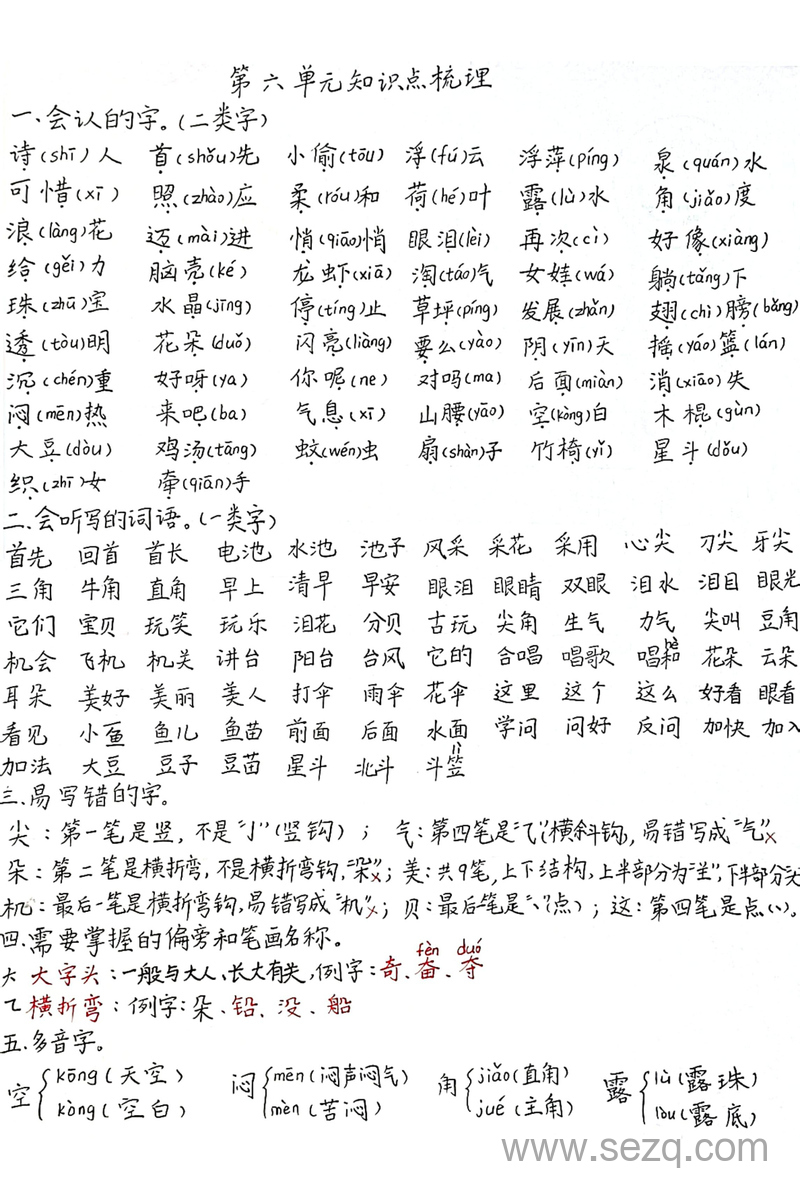 第六单元知识点梳理
一、会认的字。(二类字)
诗(shī)人 首(shǒu)先 小偷(tōu) 浮(fú)云 浮萍(píng) 泉(quán)水
可惜(xī) 照(zhào)应 柔(róu)和 荷(hé)叶 露(lù)水 角(jiǎo)度
浪(làng)花 迈(mài)进 悄(qiāo)悄 眼泪(lèi) 再次(cì) 好像(xiàng)
给(gěi)力 脑壳(ké) 龙虾(xiā) 淘(táo)气 女娃(wá) 躺(tǎng)下
珠(zhū)宝 水晶(jīng) 停(tíng)止 草坪(píng) 发展(zhǎn) 翅(chì)膀(bǎng)
透(tòu)明 花朵(duǒ) 闪亮(liàng) 要么(yào) 阴(yīn)天 摇(yáo)篮(lán)
沉(chén)重 好呀(ya) 你呢(ne) 对吗(ma) 后面(miàn) 消(xiāo)失
闷(mēn)热 来吧(ba) 气息(xī) 山腰(yāo) 空(kòng)白 木棍(gùn)
大豆(dòu) 鸡汤(tāng) 蚊(wén)虫 扇(shàn)子 竹椅(yǐ) 星斗(dǒu)
织(zhī)女 牵(qiān)手
二、会听写的词语。(一类字)
首先 回首 首长 电池 水池 池子 风采 采花 采用 心尖 刀尖 牙尖
三角 牛角 直角 早上 清早 早安 眼泪 眼睛 双眼 泪水 泪目 眼光
它们 宝贝 玩笑 玩乐 泪花 分贝 古玩 尖角 生气 力气 尖叫 豆角
机会 飞机 机关 讲台 阳台 台风 它的 合唱 唱歌 唱和(hè) 花朵 云朵
耳朵 美好 美丽 美人 打伞 雨伞 花伞 这里 这个 这么 好看 眼看
看见 小鱼 鱼儿 鱼苗 前面 后面 水面 学问 问好 反问 加快 加入
加法 大豆 豆子 豆苗 星斗 北斗 斗笠(lì)
三、易写错的字。
尖：第一笔是竖，不是“亅”(竖钩)； 气：第四笔是“乁”(横斜钩)，易错写成“气”x
朵：第二笔是横折弯，不是横折弯钩，“朵”x；美：共9笔，上下结构，上半部分为“𦍌”，下半部分“大”
机：最后一笔是横折弯钩，易错写成“机”x；贝：最后一笔是“丶”(点)；这：第四笔是点(丶)。
四、需要掌握的偏旁和笔画名称。
大 大字头：一般与大人、长大有关，例字：奇、奋(fèn)、夺(duó)
㇍ 横折弯：例字：朵、铅、没、船
五、多音字。
空{kōng(天空) kòng(空白) 闷{mēn(闷声闷气) mèn(苦闷) 角{jiǎo(直角) jué(主角) 露{lù(露珠) lòu(露底)
www.sezq.com